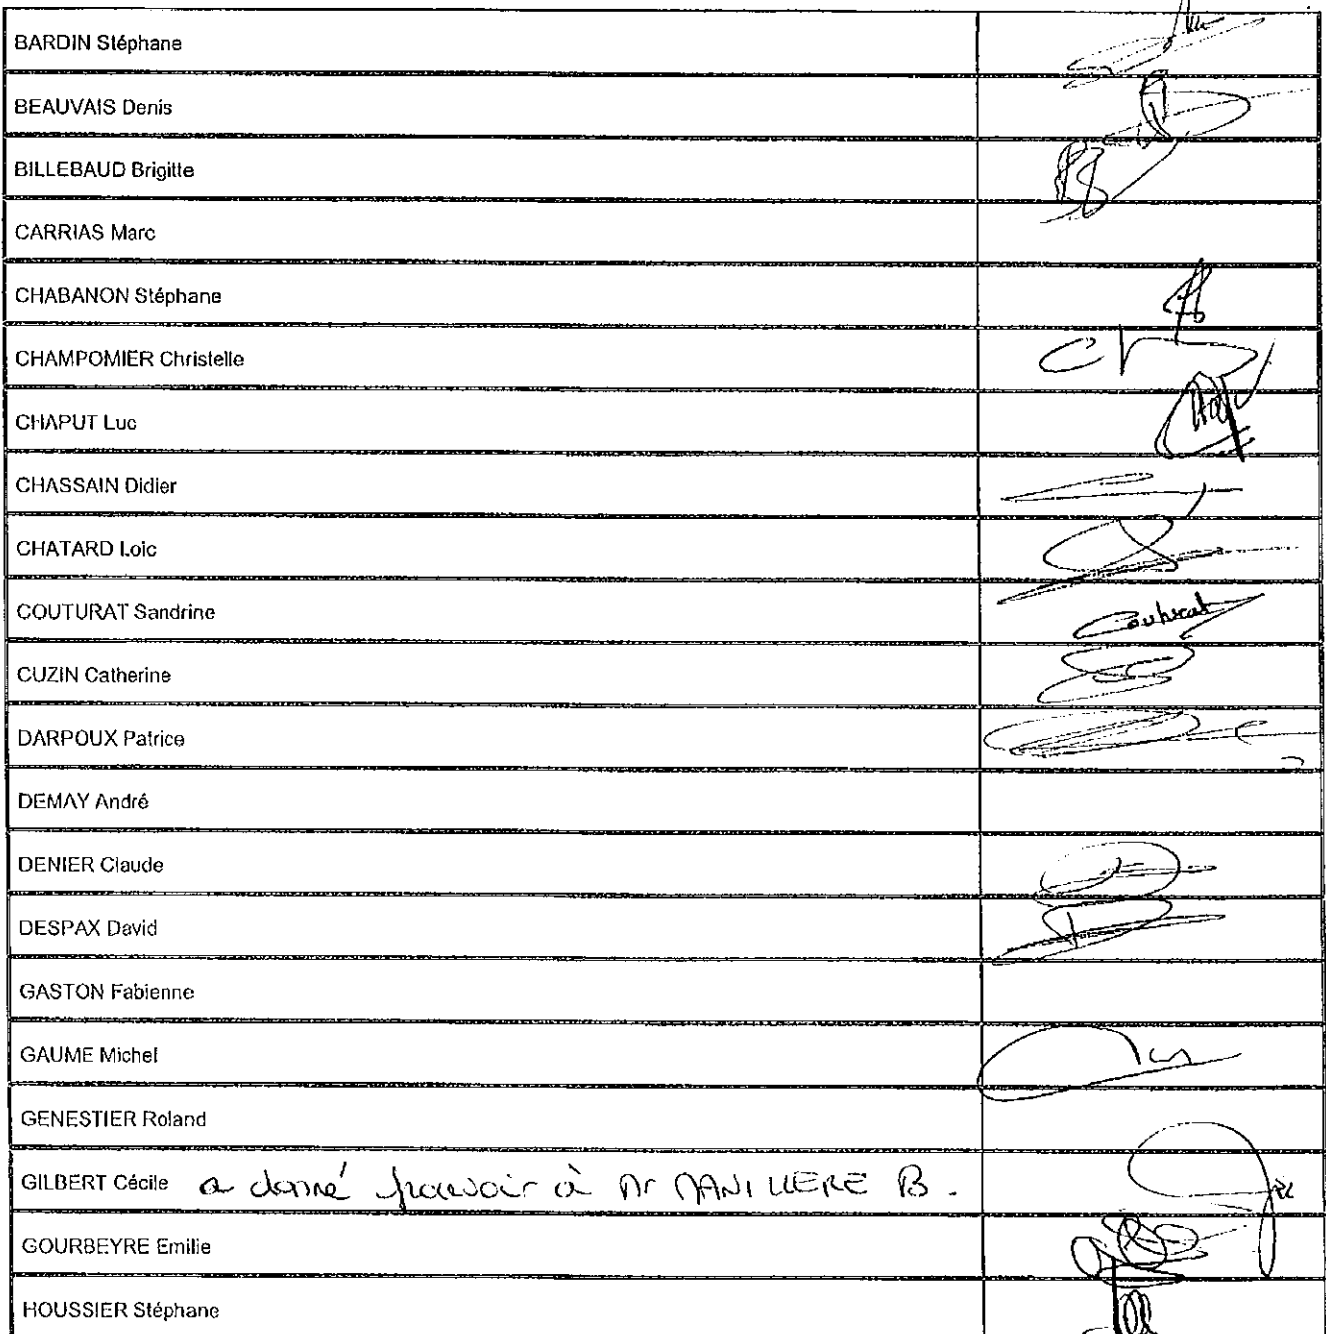 BARDIN Stéphane
BEAUVAIS Denis
BILLEBAUD Brigitte
CARRIAS Marc
CHABANON Stéphane
CHAMPOMIER Christelle
CHAPUT Luc
CHASSAIN Didier
CHATARD Loic
COUTURAT Sandrine Couturat
CUZIN Catherine
DARPOUX Patrice
DEMAY André
DENIER Claude
DESPAX David
GASTON Fabienne
GAUME Michel
GENESTIER Roland
GILBERT Cécile a donné pouvoir à Mr MANILLERE B.
GOURBEYRE Emilie
HOUSSIER Stéphane